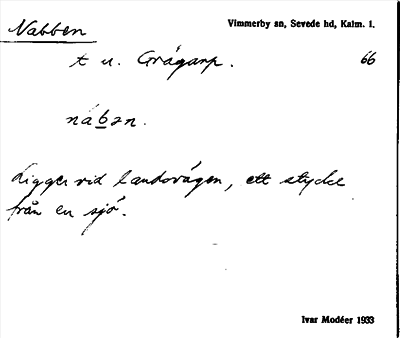 Nabben
Vimmerby sn, Sevede hd, Kalm. l.
t u. Grågarp.
66
nábən.
Ligger vid landsvägen, ett stycke
från en sjö.
Ivar Modéer 1933